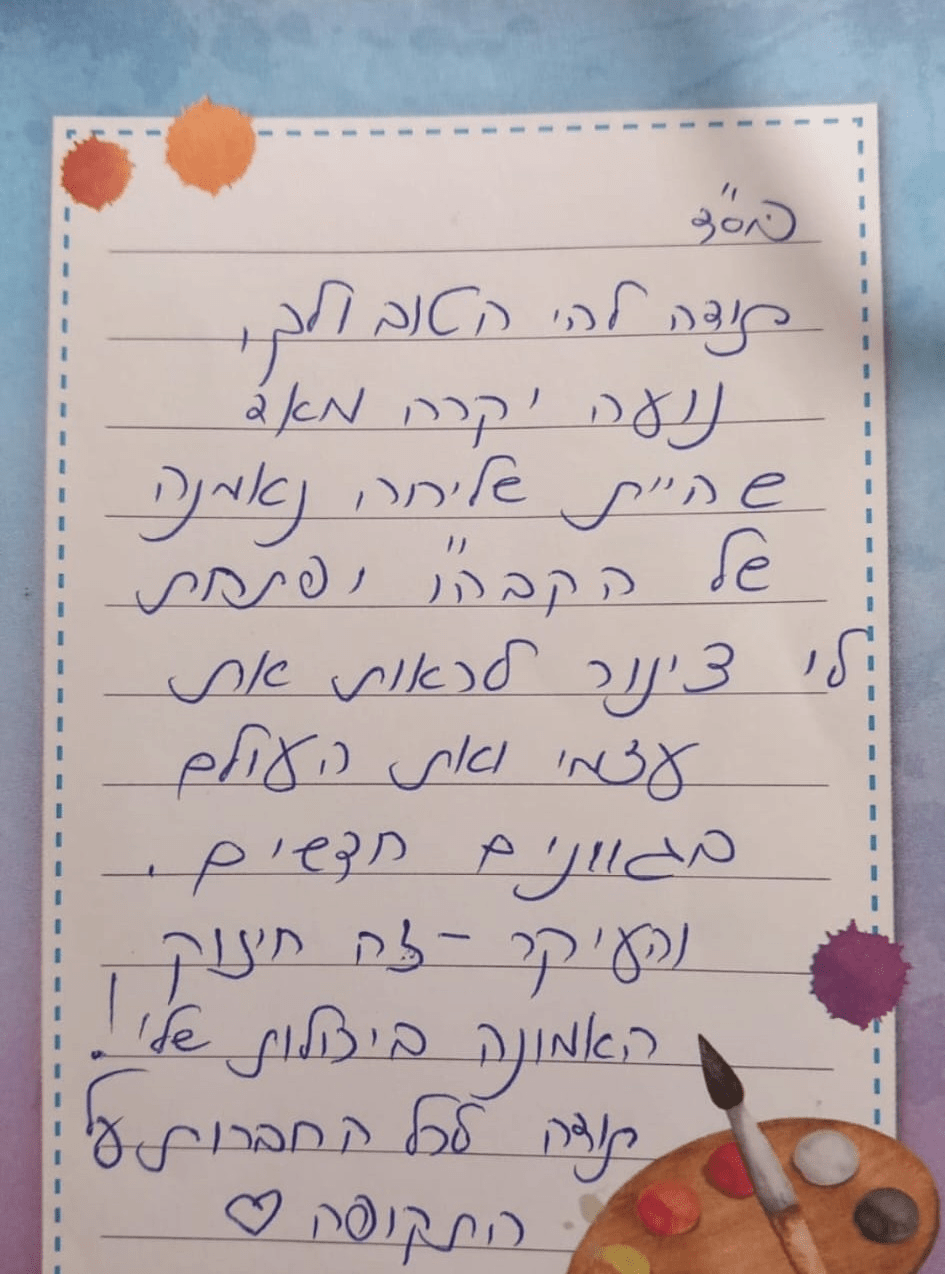 בס"ד
תודה להי הטוב ולך,
נועה יקרה מאד
שהיית שליחה נאמנה
של הקבה"ו ופתחת
לי צינור לראות את
עצמי ואת העולם
בגוונים חדשים.
והעיקר - זה חיזוק
האמונה ביכולות שלי!
תודה לכל החברות על
התקופה ♡